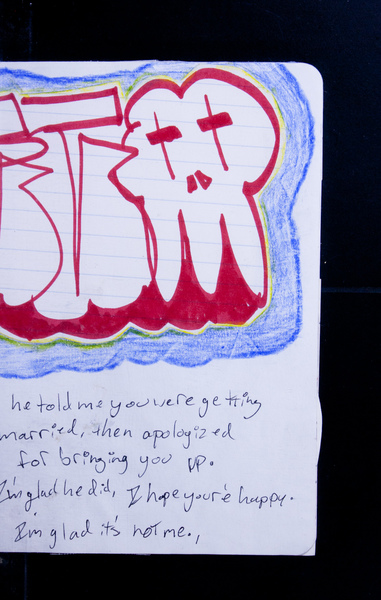 he told me you were getting
married, then apologized
for bringing you up.
I'm glad he did, I hope you're happy.
I'm glad it's not me.,